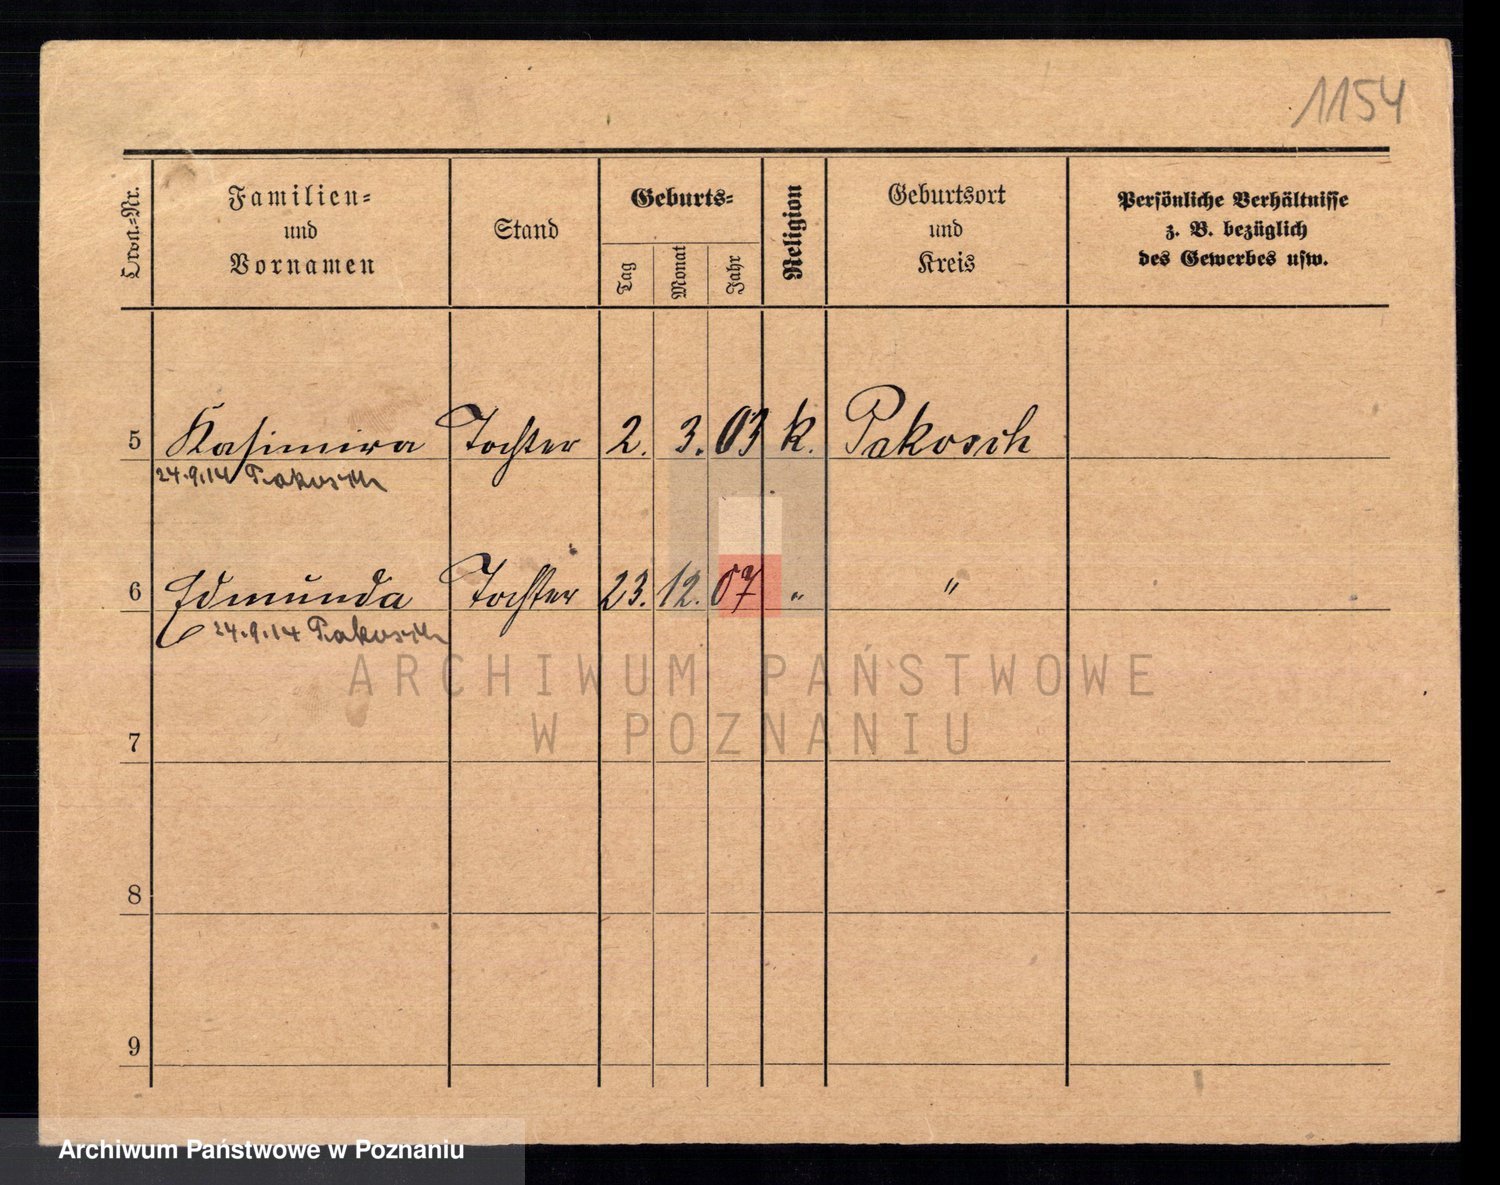 1154
Ordn.-Nr.
Familien-
und
Vornamen
Stand
Geburts-
Tag
Monat
Jahr
Religion
Geburtsort
und
Kreis
Persönliche Verhältnisse
z. B. bezüglich
des Gewerbes usw.
5 Kasimira Tochter 2. 3. 03 k. Pakosch
24.9.14 Pakosch
6 Edmunda Tochter 23. 12. 07 " "
24.9.14 Pakosch
ARCHIWUM PAŃSTWOWE
W POZNANIU
7
8
9
Archiwum Państwowe w Poznaniu